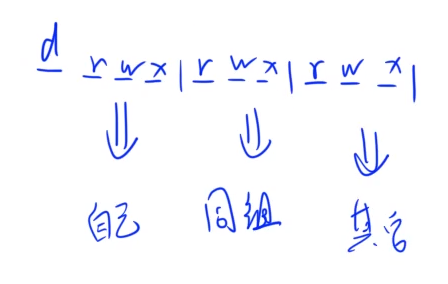 d rwx|rwx|rwx|
自己 同组 其它